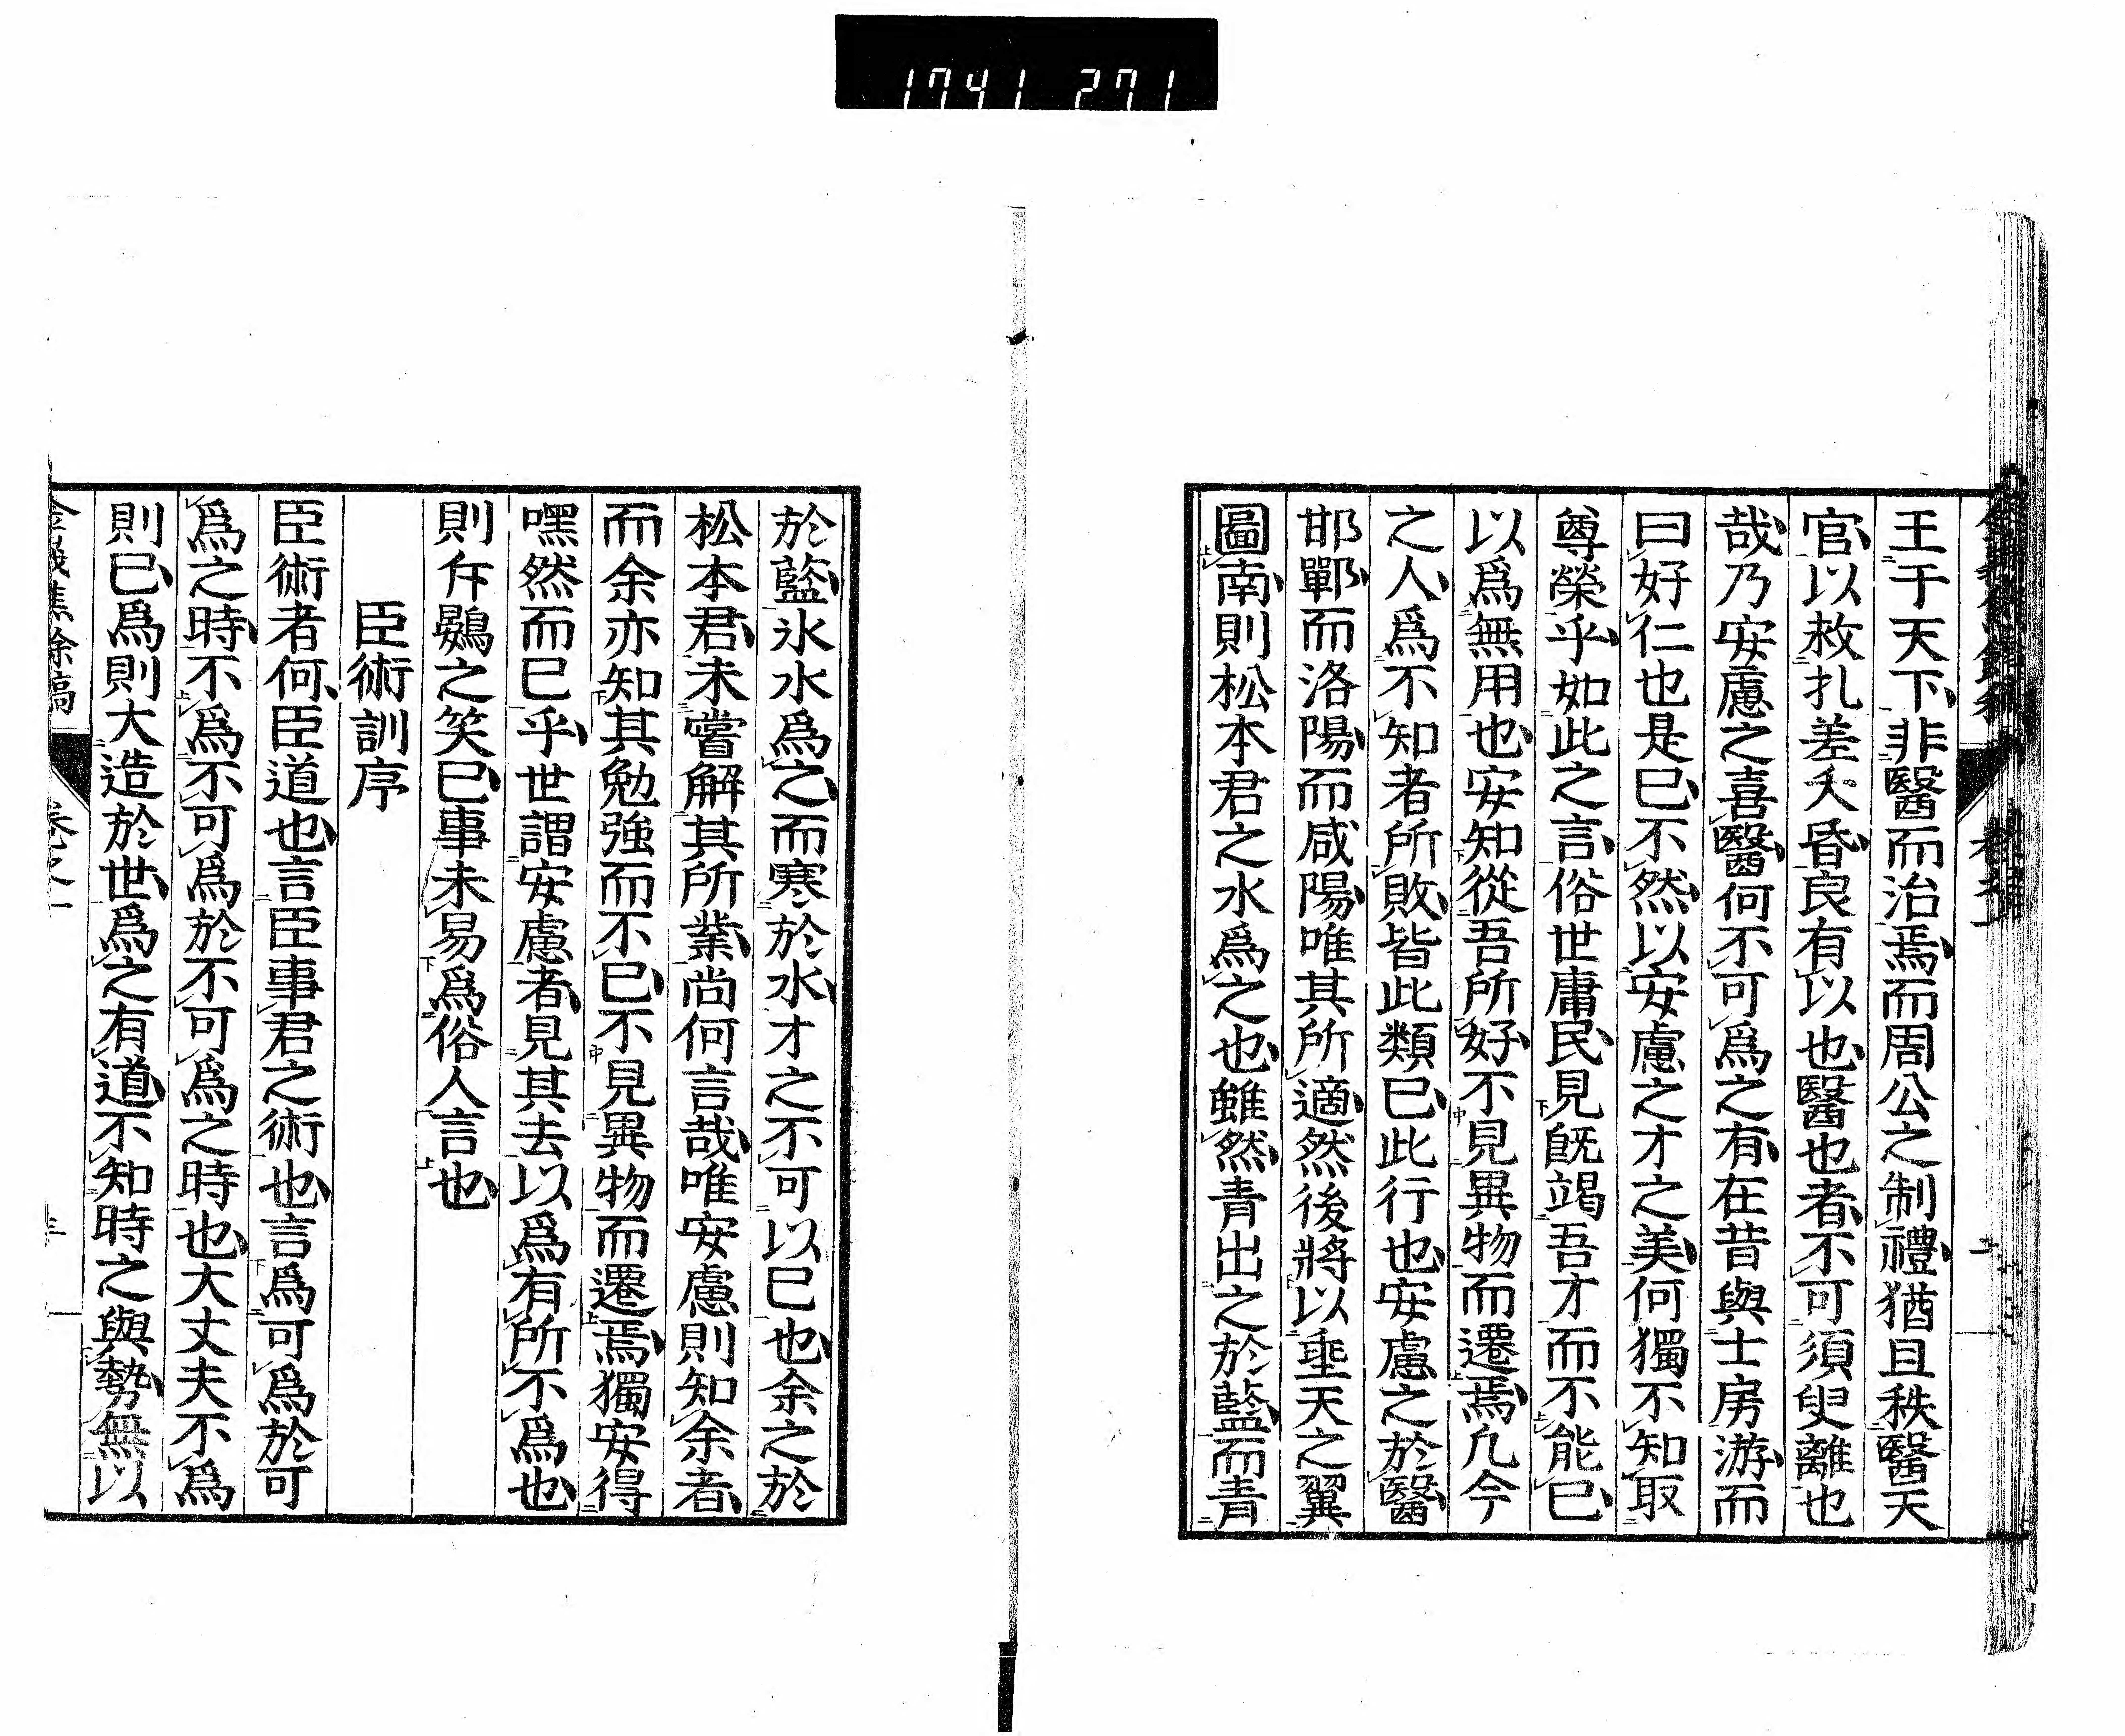 1741 271
王于天下非醫而治焉而周公之制禮猶且秩醫天
官以救扎差夭昏良有以也醫也者不可須臾離也
哉乃安慮之喜醫何不可爲之有在昔與士房游而
曰好仁也是已不然以安慮之才之美何獨不知取
尊榮乎如此之言俗世庸民見旣竭吾才而不能已
以爲無用也安知從吾所好不見異物而遷焉凢今
之人爲不知者所敗皆此類已此行也安慮之於醫
邯鄲而洛陽而咸陽唯其所適然後將以垂天之翼
圖南則松本君之水爲之也雖然青出之於藍而青
於藍氷水爲之而寒於水才之不可以已也余之於
松本君未嘗解其所業尚何言哉唯安慮則知余者
而余亦知其勉強而不已不見異物而遷焉獨安得
嘿然而已乎世謂安慮者見其去以爲有所不爲也
則斥鷃之笑已事未易爲俗人言也
臣術訓序
臣術者何臣道也言臣事君之術也言爲可爲於可
爲之時不爲不可爲於不可爲之時也大丈夫不爲
則已爲則大造於世爲之有道不知時之與勢無以
焦餘稿